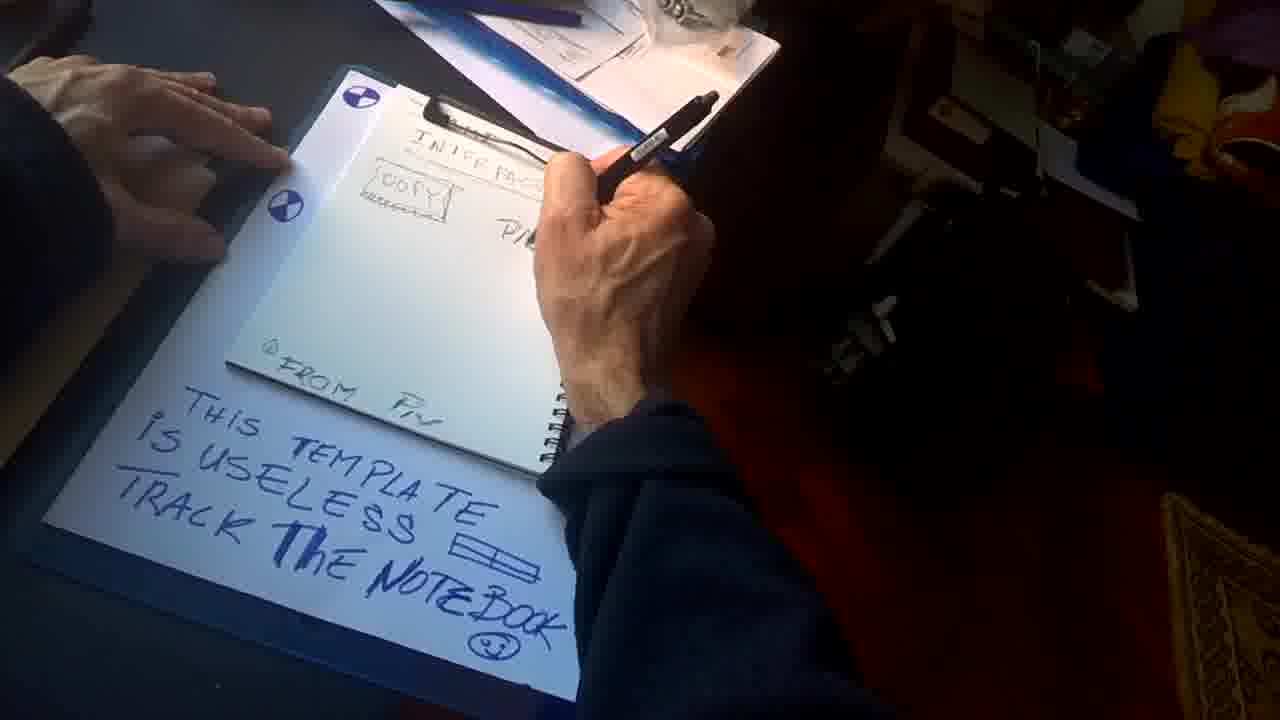 INTERFAC
COPY
FROM
THIS TEMPLATE
iS USELESS
TRACK ThE NOTEBOOK